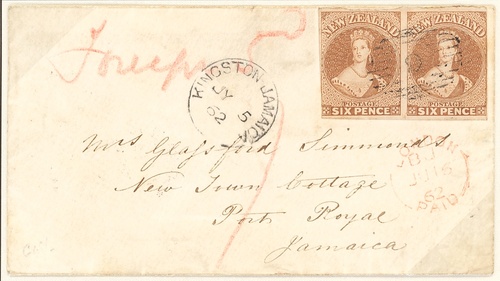 NEW ZEALAND NEW ZEALAND
POSTAGE POSTAGE
SIX PENCE SIX PENCE
KINGSTON JAMAICA
JY 5
62
Mrs Glassford Simmonds
New Town Cottage
Port Royal
Jamaica
LONDON
JU 16
62
PAID